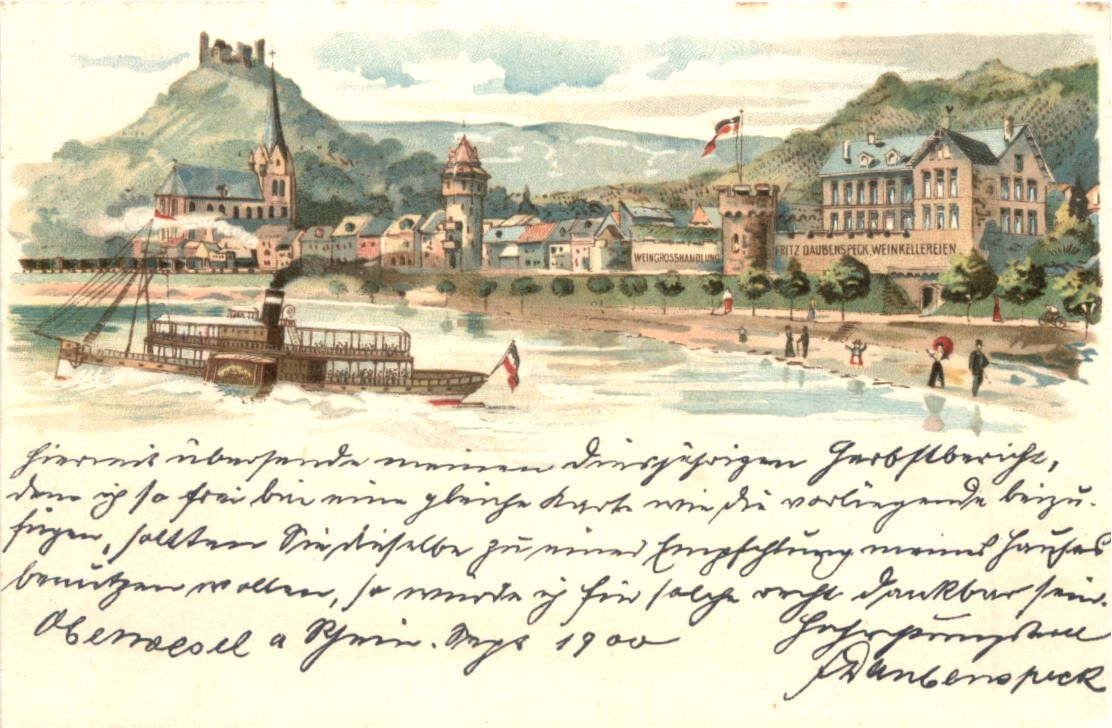 WEINGROSSHANDLUNG
FRITZ DAUBENSPECK, WEINKELLEREIEN
Hiermit übersende meinen diesjährigen Herbstbericht,
dem ich so frei bin eine gleiche Karte wie die vorliegende beizu-
fügen, sollten Sie dieselbe zu einer Empfehlung meines Hauses
benützen wollen, so würde ich für solche recht dankbar sein.
Oberwesel a Rhein. Sept 1900
Hochachtungsvoll
FDaubenspeck